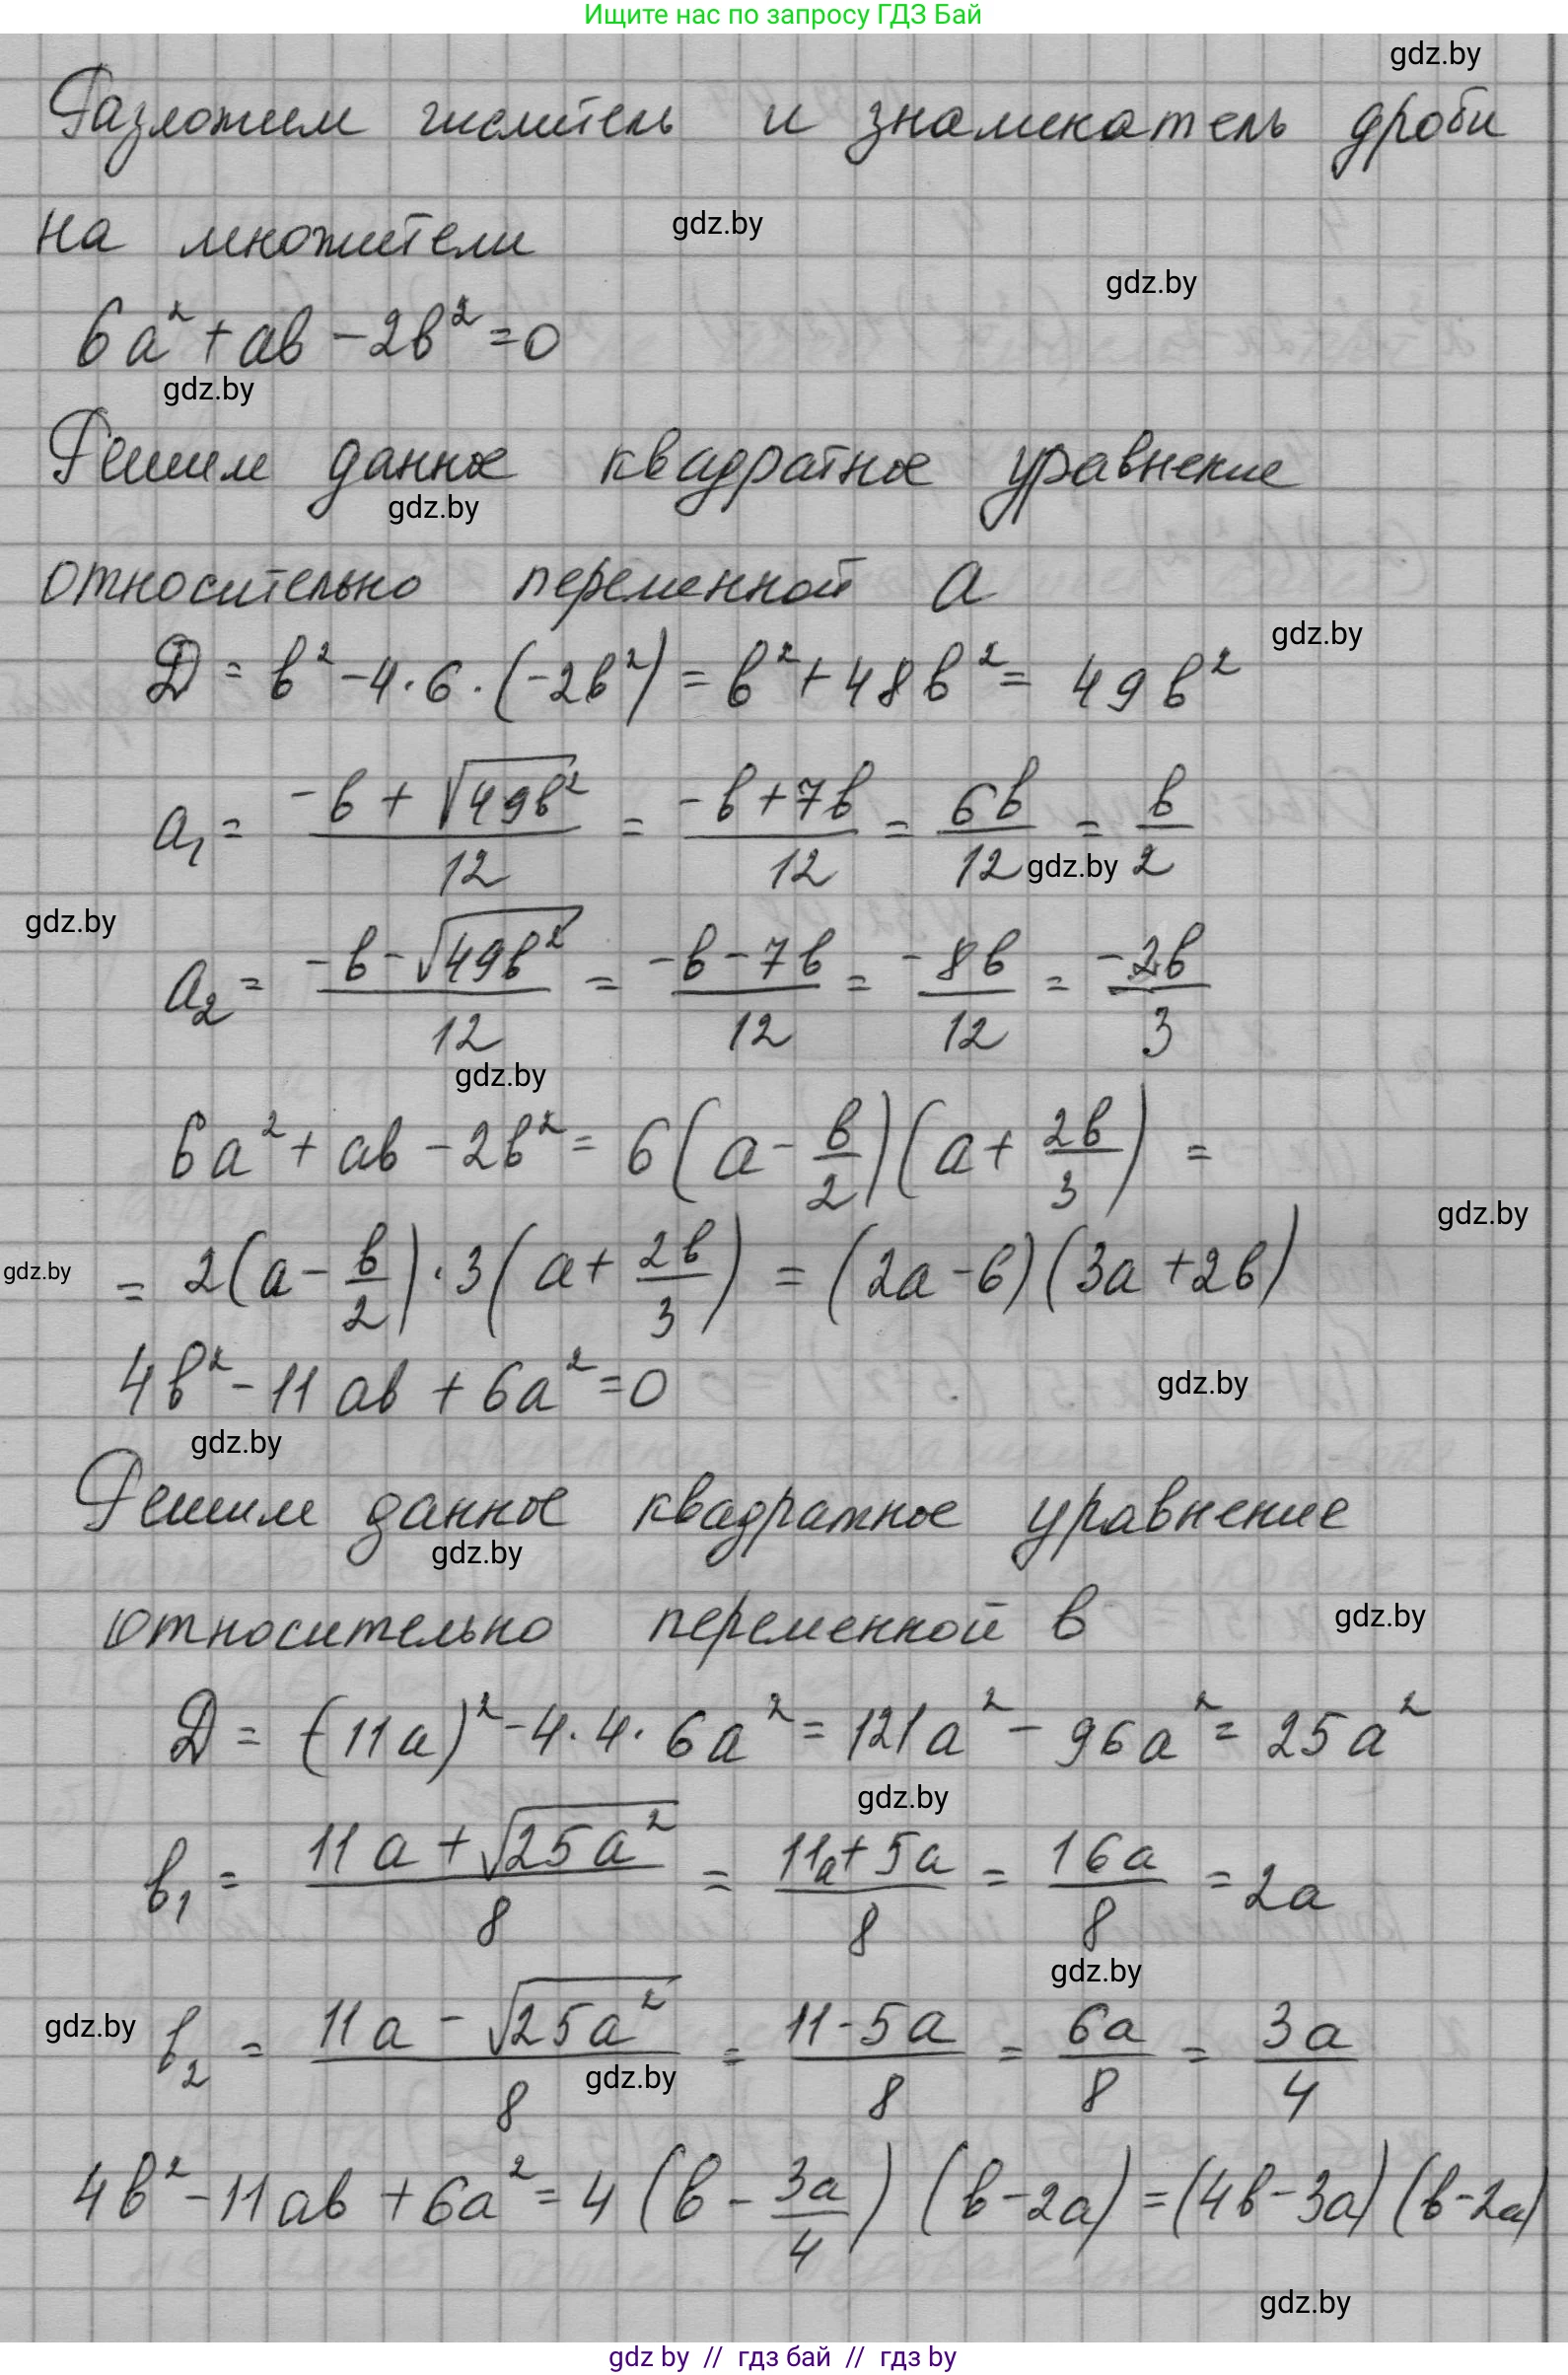 Ищите нас по запросу ГДЗ Бай
gdz.by
Разложим числитель и знаменатель дроби
на множители
gdz.by
gdz.by
6a² + ab - 2b² = 0
gdz.by
Решим данное квадратное уравнение
gdz.by
относительно переменной a
gdz.by
D = b² - 4·6·(-2b²) = b² + 48b² = 49b²
a₁ = (-b + √49b²)/12 = (-b + 7b)/12 = 6b/12 = b/2
gdz.by
gdz.by
a₂ = (-b - √49b²)/12 = (-b - 7b)/12 = -8b/12 = -2b/3
gdz.by
6a² + ab - 2b² = 6(a - b/2)(a + 2b/3) =
gdz.by
gdz.by
= 2(a - b/2)·3(a + 2b/3) = (2a - b)(3a + 2b)
4b² - 11ab + 6a² = 0
gdz.by
gdz.by
Решим данное квадратное уравнение
gdz.by
относительно переменной b
gdz.by
D = (-11a)² - 4·4·6a² = 121a² - 96a² = 25a²
gdz.by
b₁ = (11a + √25a²)/8 = (11a + 5a)/8 = 16a/8 = 2a
gdz.by
gdz.by
b₂ = (11a - √25a²)/8 = (11 - 5a)/8 = 6a/8 = 3a/4
gdz.by
4b² - 11ab + 6a² = 4(b - 3a/4)(b - 2a) = (4b - 3a)(b - 2a)
gdz.by
gdz by // гдз бай // гдз by